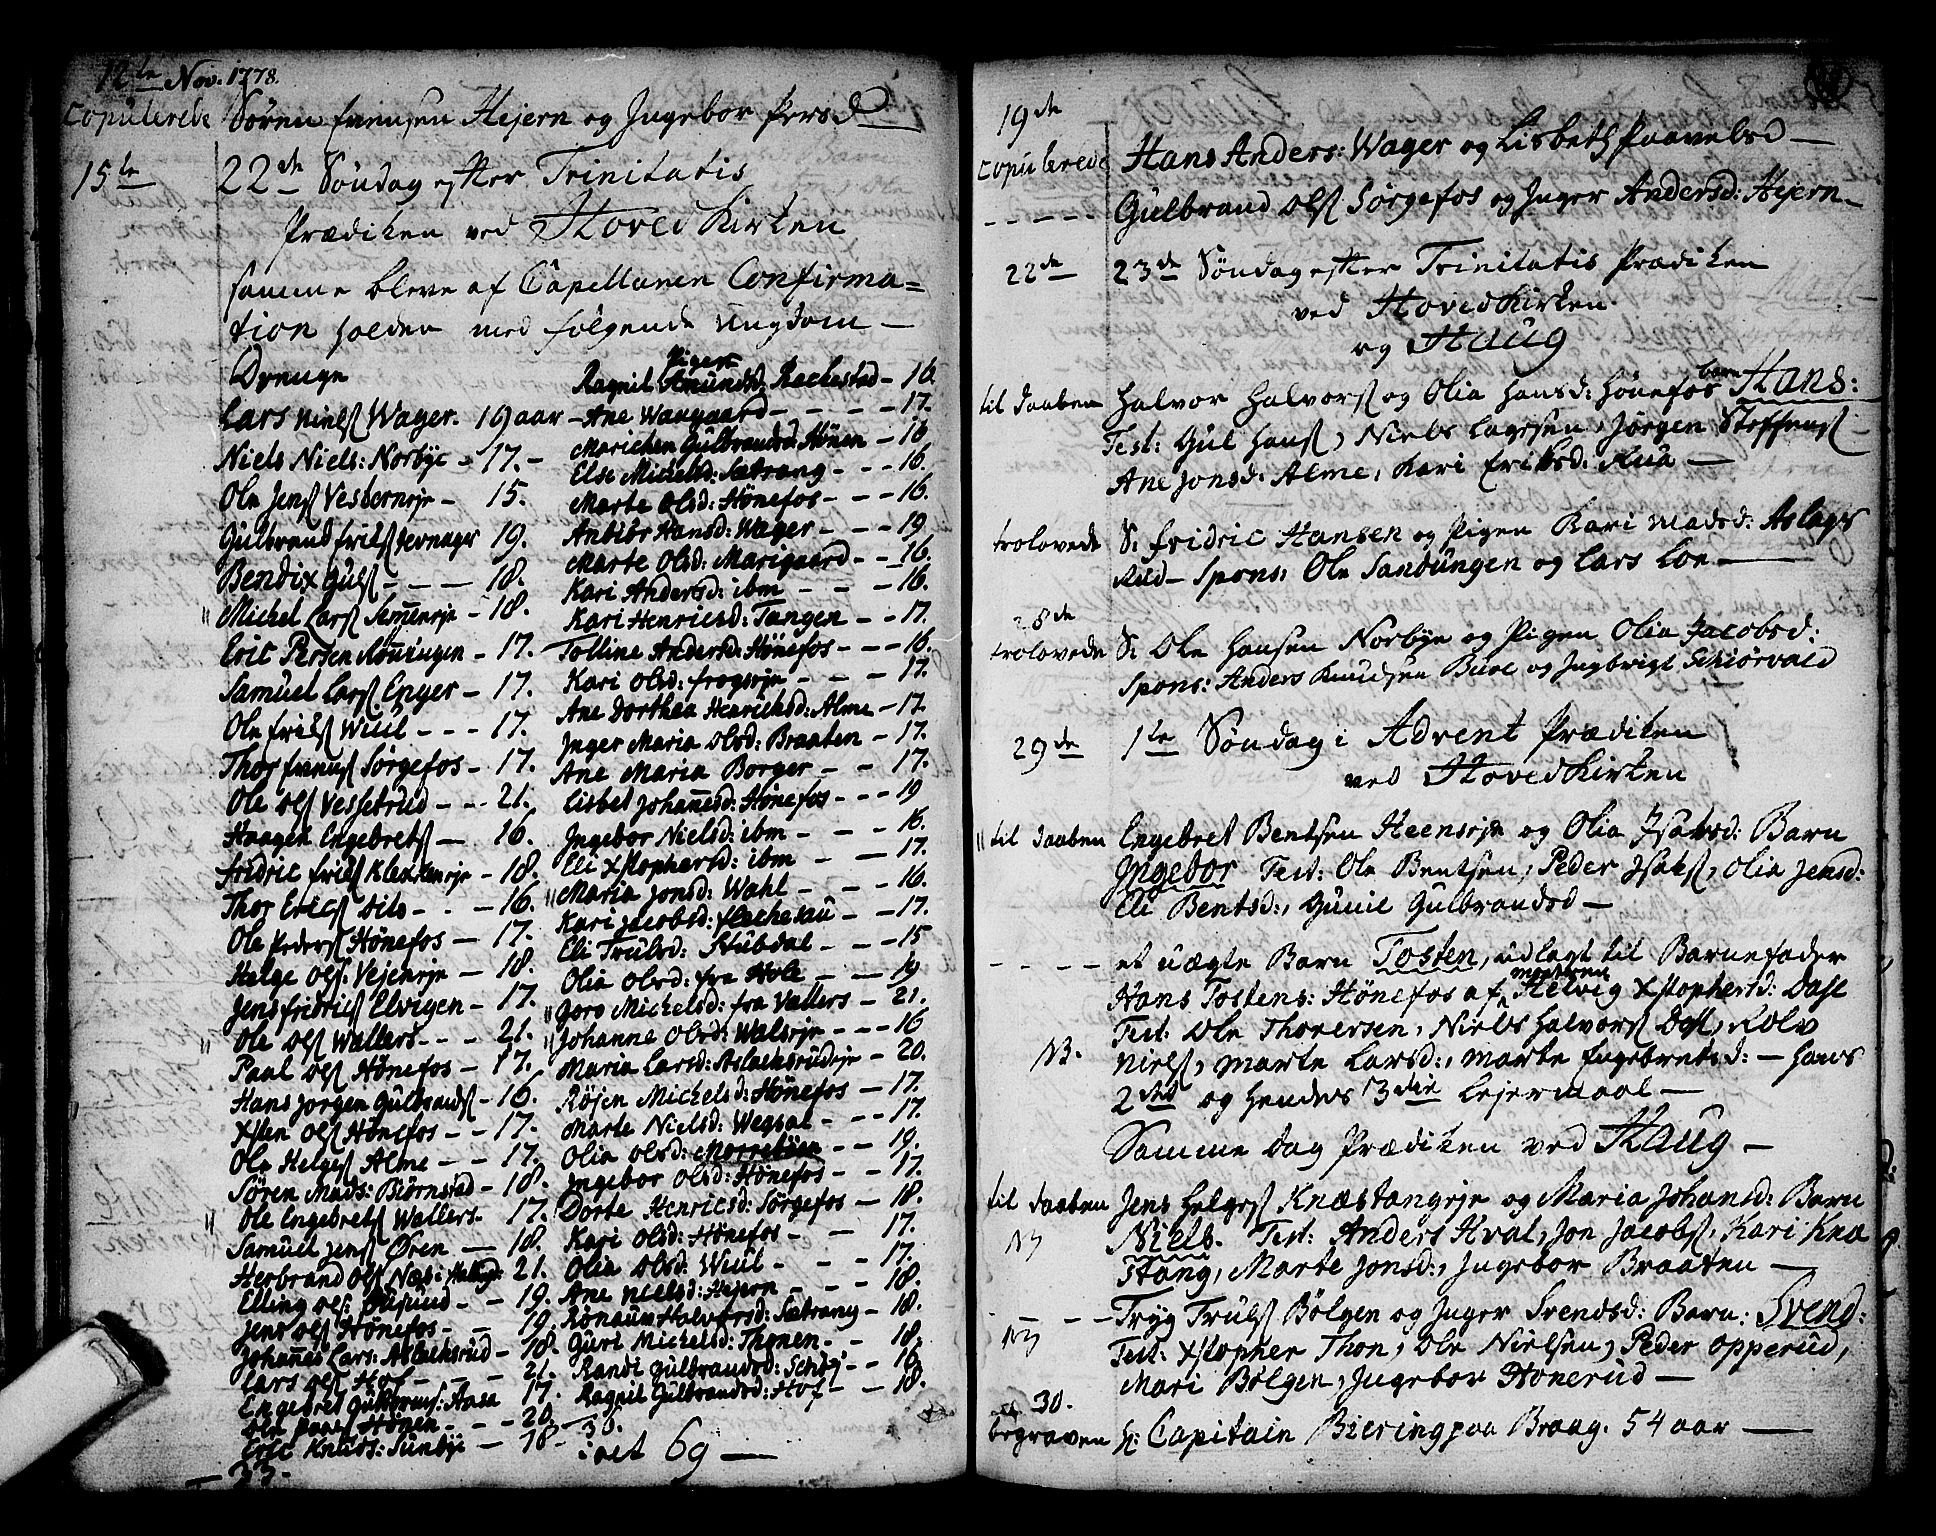 12te Nov. 1778.
Copulerede Sören frensen Hejern og Ingebor Persd
15te 22de Söndag efter Trinitatis
Prædiken ved Hoved Kirken
samme bleve af Capellanen Confirma=
tion holden med følgende Ungdom —
Drenge
Lars Niels Wager. 19 aar
Niels Niels: Norbye - 17.
Ole Jens Vesterneje - 15.
Gulbrand frils 19.
Bendix Guls - 18.
Michel Lars - 18.
Eric Persen Rönningen - 17.
Samuel Lars Enger - 17.
Ole frils Wiul - - - 17.
Thor frens Sørgefos - 17.
Ole Ols Vessetrud - - 21.
Haagen Engebrets - 16.
fridric frils Klekkenrje - 18.
Thor Erics dito - - - 16.
Ole Peders Hönefos - 17.
Helge Ols: Vejenrje - 18.
Jens fridrics Elvigen - 17.
Ole Ols Wallers - - - 21.
Paal Ols Hönefos - - 17.
Hans Jørgen Gulbrands - 16.
Xsten Ols Hönefos - - 17.
Ole Helges Alme - - 17.
Sören Mads: Biörnstad - 18.
Ole Engebrets Wallers - 17.
Samuel Jens Øren - 18.
Herbrand Ols 21.
Elling Ols: - - 19.
Jens Ols Hönefos - - 19.
Johannes Lars: Aslaksrud - 18.
Lars Ols Hof - - - 21.
Engebret Gulbrans: Aasa 17.
Ole Paals Hönen - - - 20.
Eric Knuds: Sunbye - 18.
33.
Piger
Ragnil Amundsd: Rackestad - 16.
Ane Waagaard - - - - 17.
Marichen Gulbrandsd: Hönen - 16
Else Michelsd: Sætrang - - - 16.
Marte Olsd: Hönefos - - - 16.
Anbiör Hansd: Wager - - - 19
Marte Olsd: Marigaard - - 16.
Kari Andersd: ibm - - - 16.
Kari Henricsd: Tangen - - 17.
Tolline Andersd: Hönefos - - - 16.
Kari Olsd: frogsrje - - - 17.
Ane Dorthea Henrichsd: Alme - 17.
Inger Maria Olsd: Braaten - 17.
Ane Maria Borger - - - 17.
Lisbet Johannesd: Hönefos - - - 19
Ingebor Nielsd: ibm - - - 16.
Eli Xstophersd: ibm - - 17.
Maria Jonsd: Wahl - - - 16.
Kari Jacobsd: - - 17.
Eli Trulsd: Stubdal - - - 15
Olia Olsd: fra Hole - - 19
Goro Michelsd: fra Vallers - 21.
Johanne Olsd: Walsrje - - - 16
Maria Larsd: Aslacksrudrje - 20.
Röjen Michelsd: Hönefos - 17.
Marte Nielsd: Wegsal - - - 17.
Olia Olsd: - - 19.
Ingebor Olsd: Hönefos - - 17.
Dorte Henricsd: Sørgefos - 18.
Kari Olsd: Hönefos - - 17.
Olia Olsd: Wiul - - - 17.
Ane Nielsd: Hejern - - - 18.
Rönaug Halvorsd: Sætrang - 18.
Guri Michelsd: Thonen - - 18.
Randi Gulbrandsd: - - 16
Ragnil Gulbrandsd: Hof - - 18.
36.
: alt 69 —
19de
Copulerede Hans Anders: Wager og Lisbeth Paavelsd —
- - - - - Gulbrand Ols Sörgefos og Inger Andersd: Hejern —
22de 23de Söndag efter Trinitatis Prædiken
ved Hoved Kirken
og Haug
til daaben Halvor Halvors og Olia Hansd: Hönefos barn Hans:
Test: Gul Hans, Niels Lagesen, Jørgen Steffens
Ane Jonsd: Alme, Kari Eriksd: Rua —
trolovede S: fridric Hansen og Pigen Kari Madsd: Aslags
Rud — Spons: Ole Sandungen og Lars Loe —
28de
trolovede S: Ole Hansen Norbye og Pigen Olia Jacobsd:
Spons: Anders Knudsen Bure og Ingbrigt Schiörvald
29de 1te Söndag i Advent Prædiken
ved Hoved Kirken
til daaben Engebret Bentsen Heensrje og Olia Isaksd: Barn
Ingebor Test: Ole Bentsen, Peder Isaks, Olia Jensd:
Eli Bentsd:, Gunil Gulbrandsd —
- - - - et uægte Barn Tosten, udlagt til Barnefader
Hans Tostens: Hönefos af moderen Helvig Xstophersd: Dase
Test: Ole Thoresen, Niels Halvors Das, Rolv
NB. Niels, Marte Larsd:, Marte Engebretsd: — Hans
2det og hendes 3die Lejermaal —
Samme dag Prædiken ved Haug —
til daaben Jens Helges Knæstangrje og Maria Johansd: Barn
Niels. Test: Anders Hval, Jon Jacobs, Kari Knæ
Stang, Marte Jonsd:, Ingebor Braaten —
- - - Tryg Truls Bölgen og Inger Svendsd: Barn: Svend:
Test: Xstopher Thon, Ole Nielsen, Peder Opperud,
Mari Bölgen, Ingebor Hönerud —
30.
begraven H: Capitain Biering paa Braag. 54 aar —